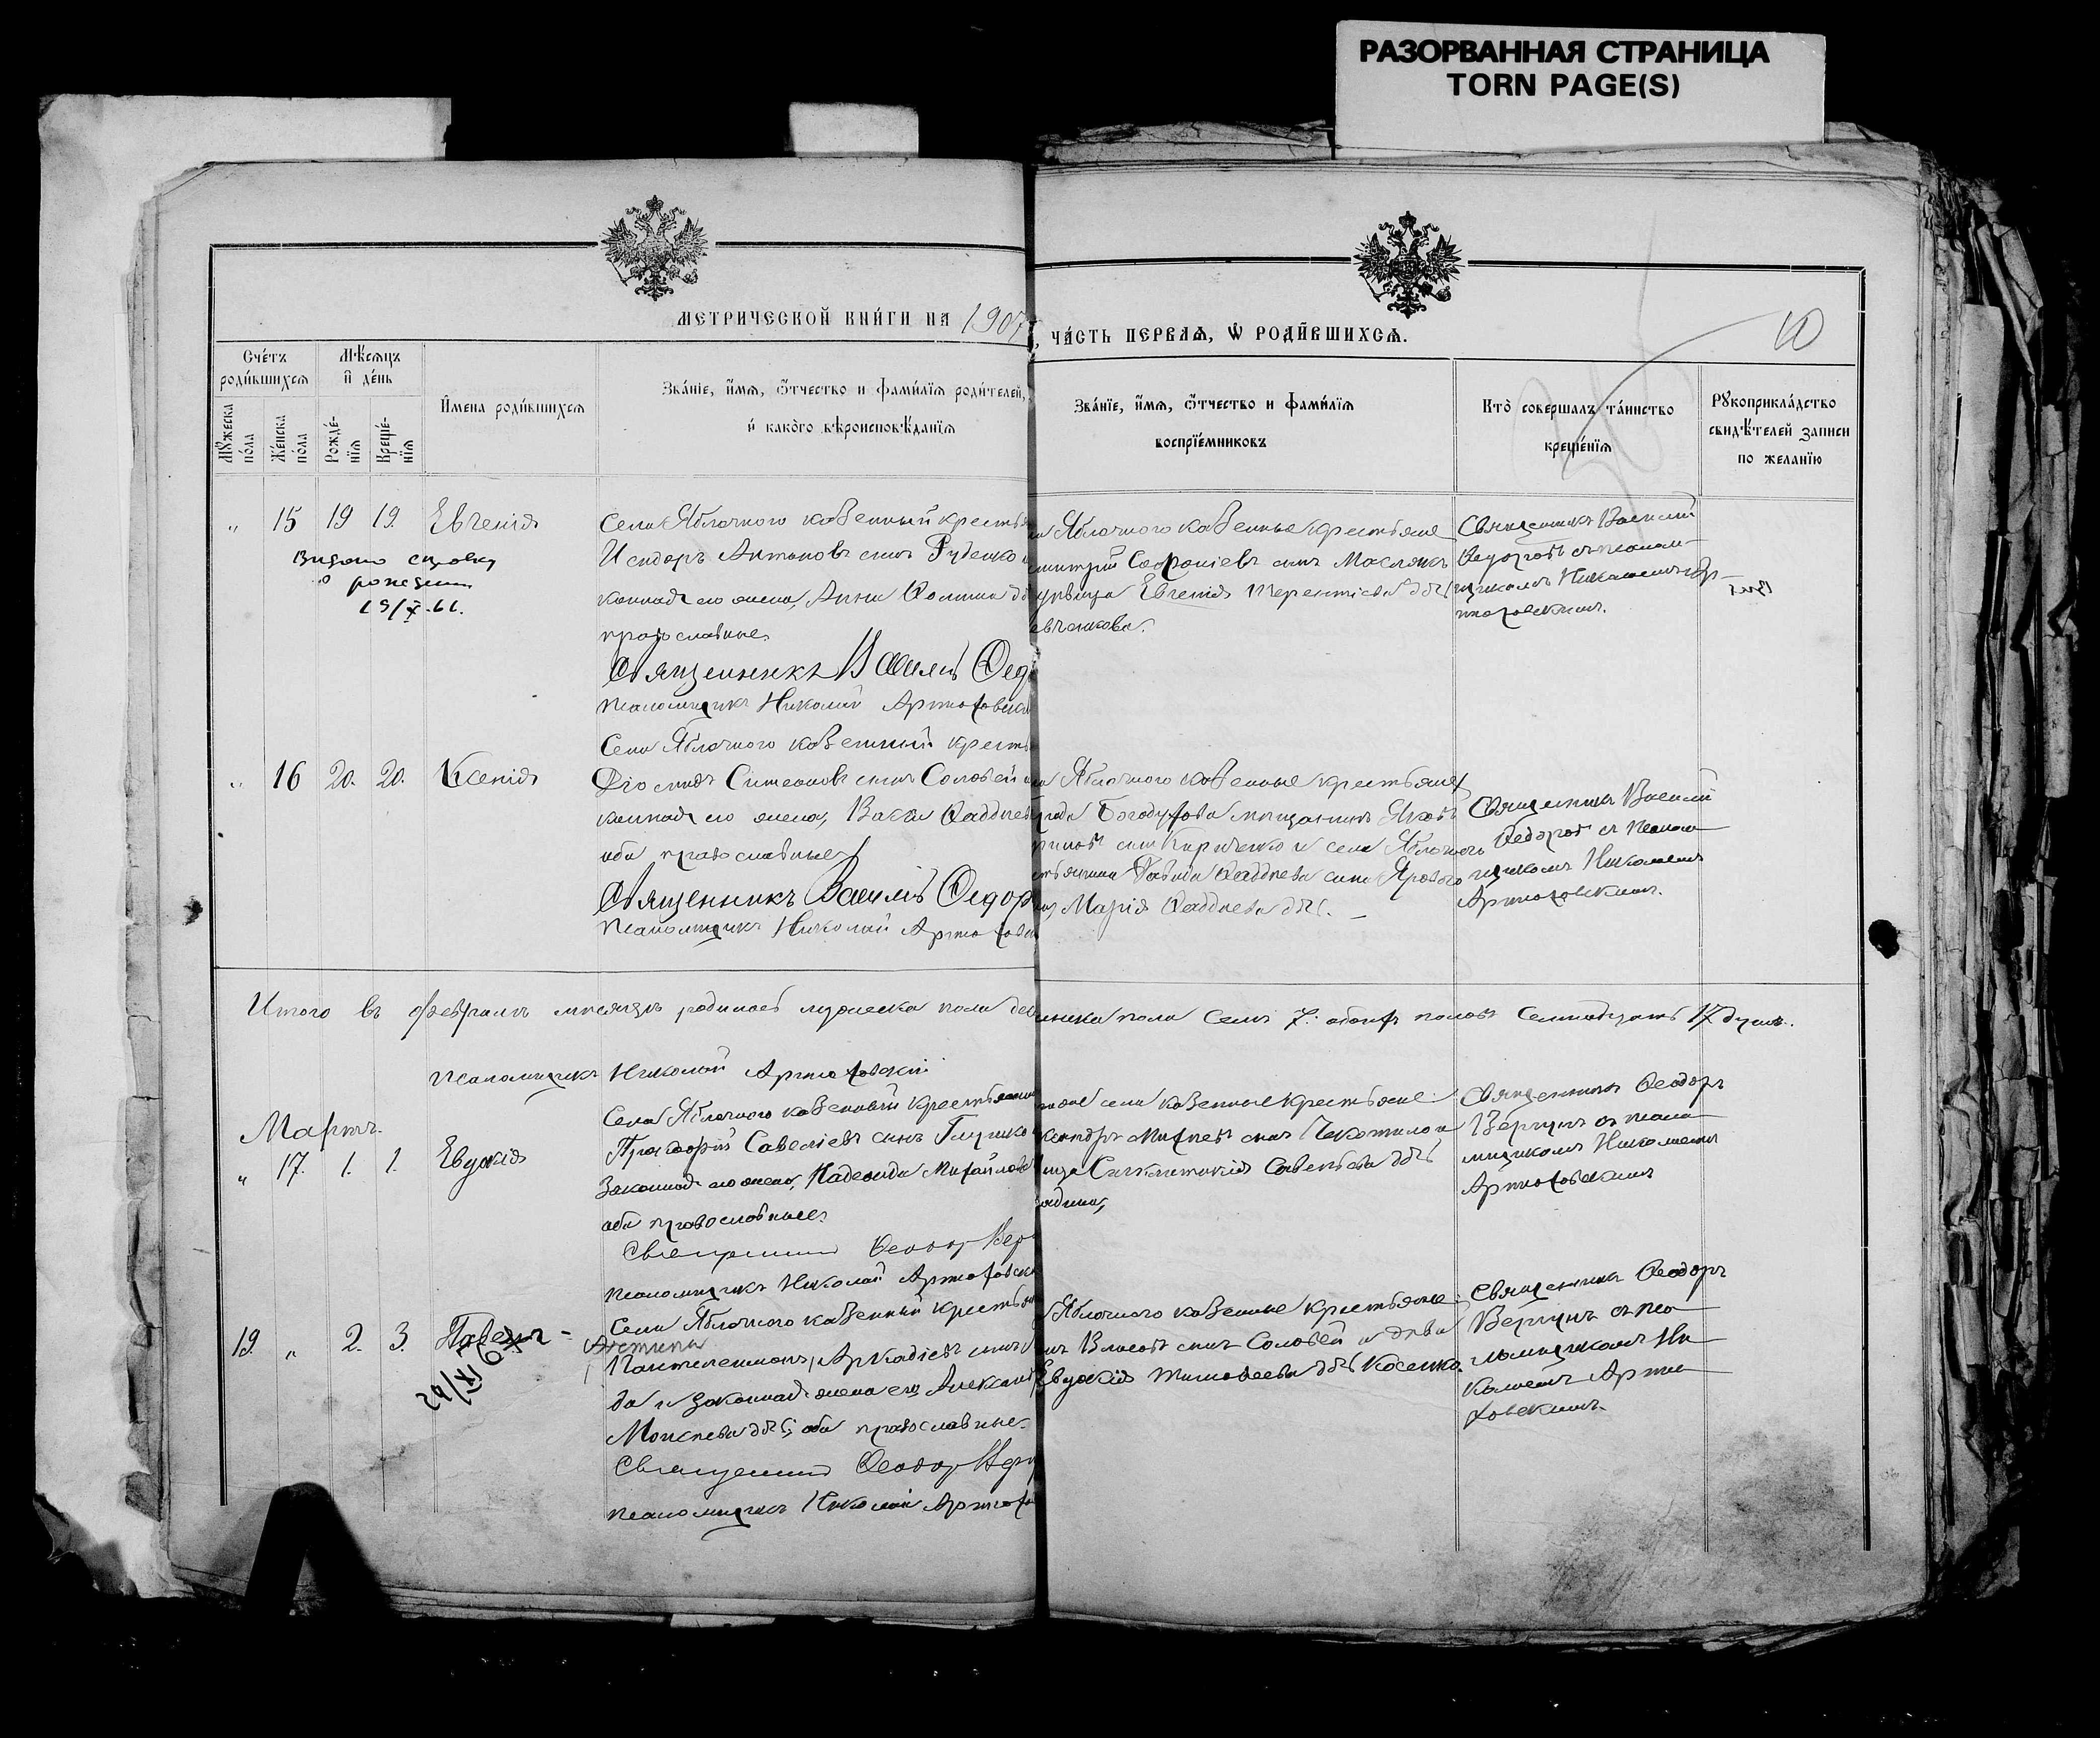 РАЗОРВАННАЯ СТРАНИЦА
TORN PAGE(S)
МЕТРИЧЕСКОЙ КНИГИ НА 1907
, ЧАСТЬ ПЕРВАЯ, Ѡ РОДИВШИХСЯ.
10
Счетъ родившихся
Мѣсяцъ и день
Имена родившихся
Званіе, имя, ѿтчество и фамилія родителей,
и какого вѣроисповѣданія
Званіе, имя, ѿтчество и фамилія
воспріемниковъ
Кто совершалъ таинство
крещенія
Рꙋкоприкладство
свидѣтелей записи
по желанію
Мꙋжеска пола
Женска пола
Рожденія
Крещенія
" 15 19 19. Евгенія
Видано справку
о рождении
19/X-61.
Села Яблочного казенный крестья
Исидоръ Антоновъ сынъ Руденко и
конная его жена, Анна Ѳомина
православные
Священникъ Василій Ѳедо
Псаломщикъ Николай Артюховски
Яблочного казенные крестьяне
митрій Софроніевъ сынъ Маслякъ
дѣвица Евгенія Терентіева дочь
евченкова.
Священникъ Василій
Ѳедоровъ съ псалом-
щикомъ Николаемъ Ар-
тюховскимъ.
" 16 20. 20. Ксенія
Села Яблочного казенный кресть
Діомидъ Симеоновъ сынъ Соловей и
конная его жена, Васса Ѳаддеев
оба православные
Священникъ Василій Ѳедор
Псаломщикъ Николай Артюхов
Яблочного казенные крестьяне
города Богодухова мещанинъ Яковъ
сынъ Кириченко и села Яблочного
Давида Ѳаддеева сына Ярового
Марія Ѳаддеева дочь.
Священникъ Василій
Ѳедоровъ съ псалом-
щикомъ Николаемъ
Артюховскимъ.
Итого въ февралѣ мѣсяцѣ родилось мужеска пола дес
женска пола семь 7. обоихъ половъ семнадцать 17 душъ.
Псаломщикъ Николай Артюховскій
Мартъ.
" 17. 1. 1. Евдокія
Села Яблочного казенный крестьянин
Прокофій Савеліевъ сынъ Глушко
законная его жена, Надежда Михайлова
оба православные
Священникъ Ѳеодоръ Вер
Псаломщикъ Николай Артюховск
села казенные крестьяне:
Михеевъ сынъ Чекотило и
Синклитикія Савельева дочь
Священникъ Ѳеодоръ
Вергунъ съ псало-
мщикомъ Николаемъ
Артюховскимъ
19. " 2. 3. Павелъ
29/XI 67
Села Яблочного казенный крестьян
Пантелеимонъ Аркадіевъ сынъ
да и законная жена его Александ
Моисеева дочь, оба православные.
Священникъ Ѳеодоръ Верг
Псаломщикъ Николай Артюхо
Яблочного казенные крестьяне:
Власовъ сынъ Соловей и дѣви
Евдокія Тимоѳеева дочь Косенко.
Священникъ Ѳеодоръ
Вергунъ съ пса-
ломщикомъ Ни-
колаемъ Артю-
ховскимъ.